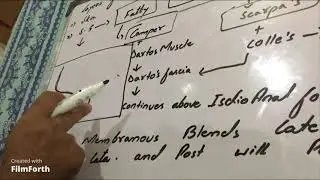 Layers of
• Skin
• S.S
Fatty
Scarpa's
+
Camper
+
Colle's
Dartos Muscle
Dartos fascia
Continues above Ischio Anal fo
Membranous Blends Late
Lata. and Post with P
Created with
FilmForth